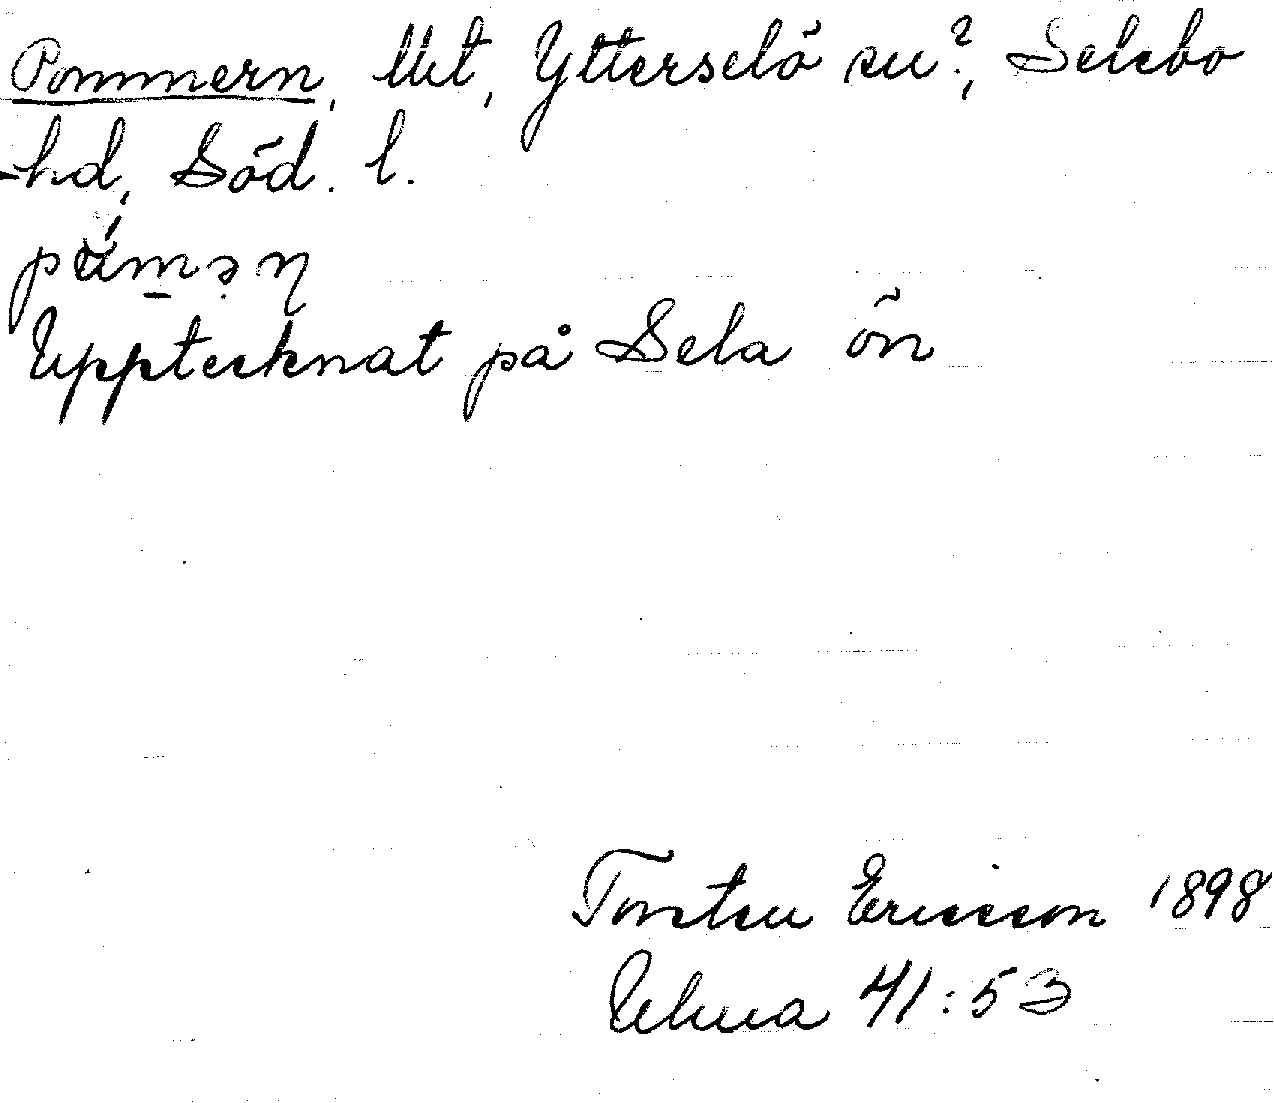 Pommern, Utt, Ytterselö sn?, Selebo
hd, Söd. l.
Upptecknat på Sela ön
Torsten Ericsson 1898
Ulma 41:53